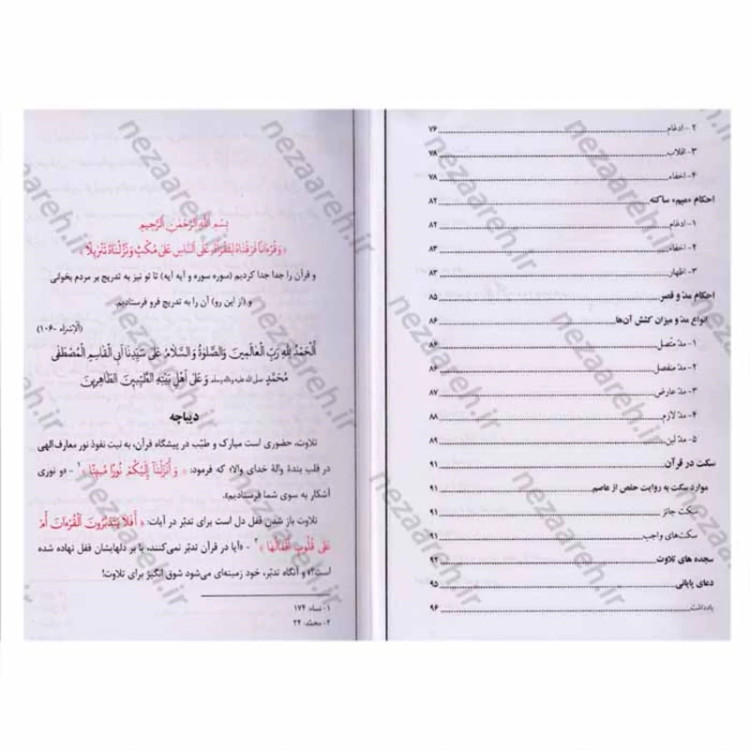 ۲- ادغام ۷۶
۳- اقلاب ۷۸
۴- اخفاء ۷۸
احکام «میم» ساکنه ۸۲
۱- ادغام ۸۲
۲- اخفاء ۸۳
۳- اظهار ۸۳
احکام مدّ و قصر ۸۵
انواع مدّ و میزان کشش آن‌ها ۸۶
۱- مدّ متّصل ۸۶
۲- مدّ منفصل ۸۶
۳- مدّ عارض ۸۷
۴- مدّ لازم ۸۸
۵- مدّ لین ۸۹
سکت در قرآن ۹۱
موارد سکت به روایت حفص از عاصم ۹۱
سکت جائز ۹۱
سکت‌های واجب ۹۱
سجده های تلاوت ۹۲
دعای پایانی ۹۵
یادداشت ۹۶
بِسْمِ اللَّهِ الرَّحْمٰنِ الرَّحِیمِ
﴿وَ قُرْءَانًا فَرَقْنَاهُ لِتَقْرَأَهُ عَلَى النَّاسِ عَلَىٰ مُكْثٍ وَ نَزَّلْنَاهُ تَنْزِيلًا﴾
و قرآن را جدا جدا کردیم (سوره سوره و آیه آیه) تا تو نیز به تدریج بر مردم بخوانی
و (از این رو) آن را به تدریج فرو فرستادیم.
(الإسراء -۱۰۶)
اَلْحَمْدُ لِلّٰهِ رَبِّ الْعَالَمِینَ وَالصَّلٰوةُ وَ السَّلَامُ عَلَى سَیِّدِنَا أَبِی الْقَاسِمِ الْمُصْطَفَى
مُحَمَّدٍ صلی الله علیه واله وسلم وَ عَلَى أَهْلِ بَیْتِهِ الطَّیِّبِینَ الطَّاهِرِینَ
دیباچه
تلاوت، حضوری است مبارک و طیّب در پیشگاه قرآن، به نیت نفوذ نور معارف الهی
در قلب بندۀ والۀ خدای والا؛ که فرمود: ﴿وَ أَنْزَلْنَا إِلَیْكُمْ نُورًا مُبِینًا﴾ ۱ - «و نوری
آشکار به سوی شما فرستادیم».
تلاوت باز شدن قفل دل است برای تدبّر در آیات: ﴿أَفَلَا یَتَدَبَّرُونَ الْقُرْءَانَ أَمْ
عَلَىٰ قُلُوبٍ أَقْفَالُهَا﴾ ۲ - «آیا در قرآن تدبّر نمی‌کنند، یا بر دلهایشان قفل نهاده شده
است؟» و آنگاه تدبّر، خود زمینه‌ای می‌شود شوق انگیز برای تلاوت!
۱- نساء: ۱۷۴
۲- محمّد: ۲۴
nezaareh.ir